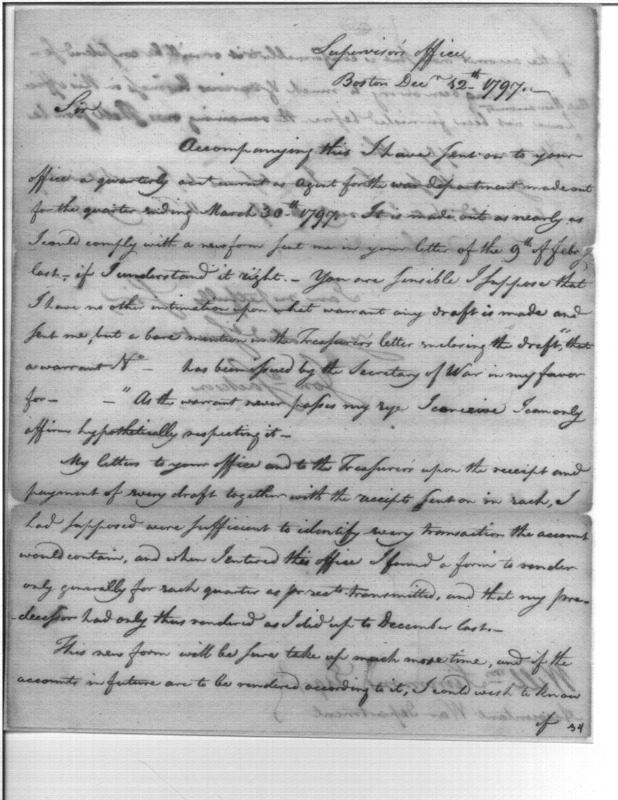 Supervisor's office
Boston Decr 12th 1797.
Sir
Accompanying this I have sent on to your
office a quarterly acct current as Agent for the war department made out
for the quarter ending March 30th 1797. It is made out as nearly as
I could comply with a new form sent me in your letter of the 9th of feby
last, if I understand it right. – You are sensible I suppose that
I have no other intimation upon what warrant any draft is made and
sent me, but a bare mention in the Treasurer's letter enclosing the draft, "that
a warrant No – has been issued by the Secretary of War in my favor
for – – " As the warrant never passes my eye I conceive I can only
affirm hypothetically respecting it –
My letters to your office and to the Treasurer's upon the receipt and
payment of every draft together with the receipts sent on in each, I
had supposed were sufficient to identify every transaction the account
would contain, and when I entered this office I found a form to render
only generally for each quarter as receipts transmitted, and that my pre-
decessor had only thus rendered as I did up to December last. –
This new form will be sure take up much more time, and if the
accounts in future are to be rendered according to it, I could wish to know
if
34